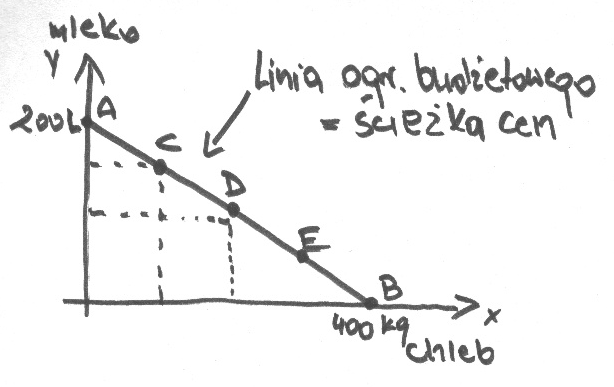 mleko
y
Linia ogr. budżetowego
= ścieżka cen
200L
A
C
D
E
B
x
400 kg
chleb